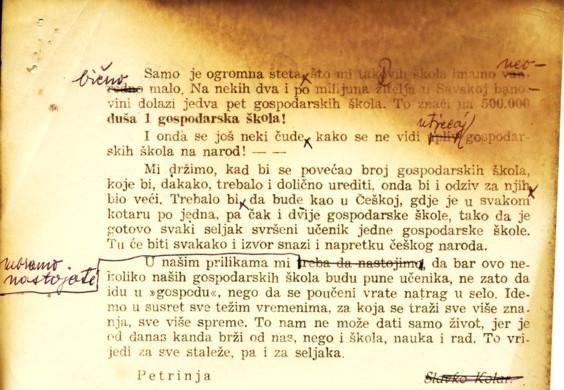 neo-
bično
Samo je ogromna šteta što mi takovih škola imamo van-
redno malo. Na nekih dva i po milijuna žitelja u Savskoj bano-
vini dolazi jedva pet gospodarskih škola. To znači na 500.000
duša 1 gospodarska škola!
utjecaj
I onda se još neki čude, kako se ne vidi upliv gospodar-
skih škola na narod! — —
Mi držimo, kad bi se povećao broj gospodarskih škola,
koje bi, dakako, trebalo i dolično urediti, onda bi i odziv za njih
bio veći. Trebalo bi da bude kao u Češkoj, gdje je u svakom
kotaru po jedna, pa čak i dvije gospodarske škole, tako da je
gotovo svaki seljak svršeni učenik jedne gospodarske škole.
Tu će biti svakako i izvor snazi i napretku češkog naroda.
moramo
nastojati
U našim prilikama mi treba da nastojimo, da bar ovo ne-
koliko naših gospodarskih škola budu pune učenika, ne zato da
idu u »gospodu«, nego da se poučeni vrate natrag u selo. Ide-
mo u susret sve težim vremenima, za koja se traži sve više zna-
nja, sve više spreme. To nam ne može dati samo život, jer je
od danas kanda brži od nas, nego i škola, nauka i rad. To vri-
jedi za sve staleže, pa i za seljaka.
Petrinja Slavko Kolar.